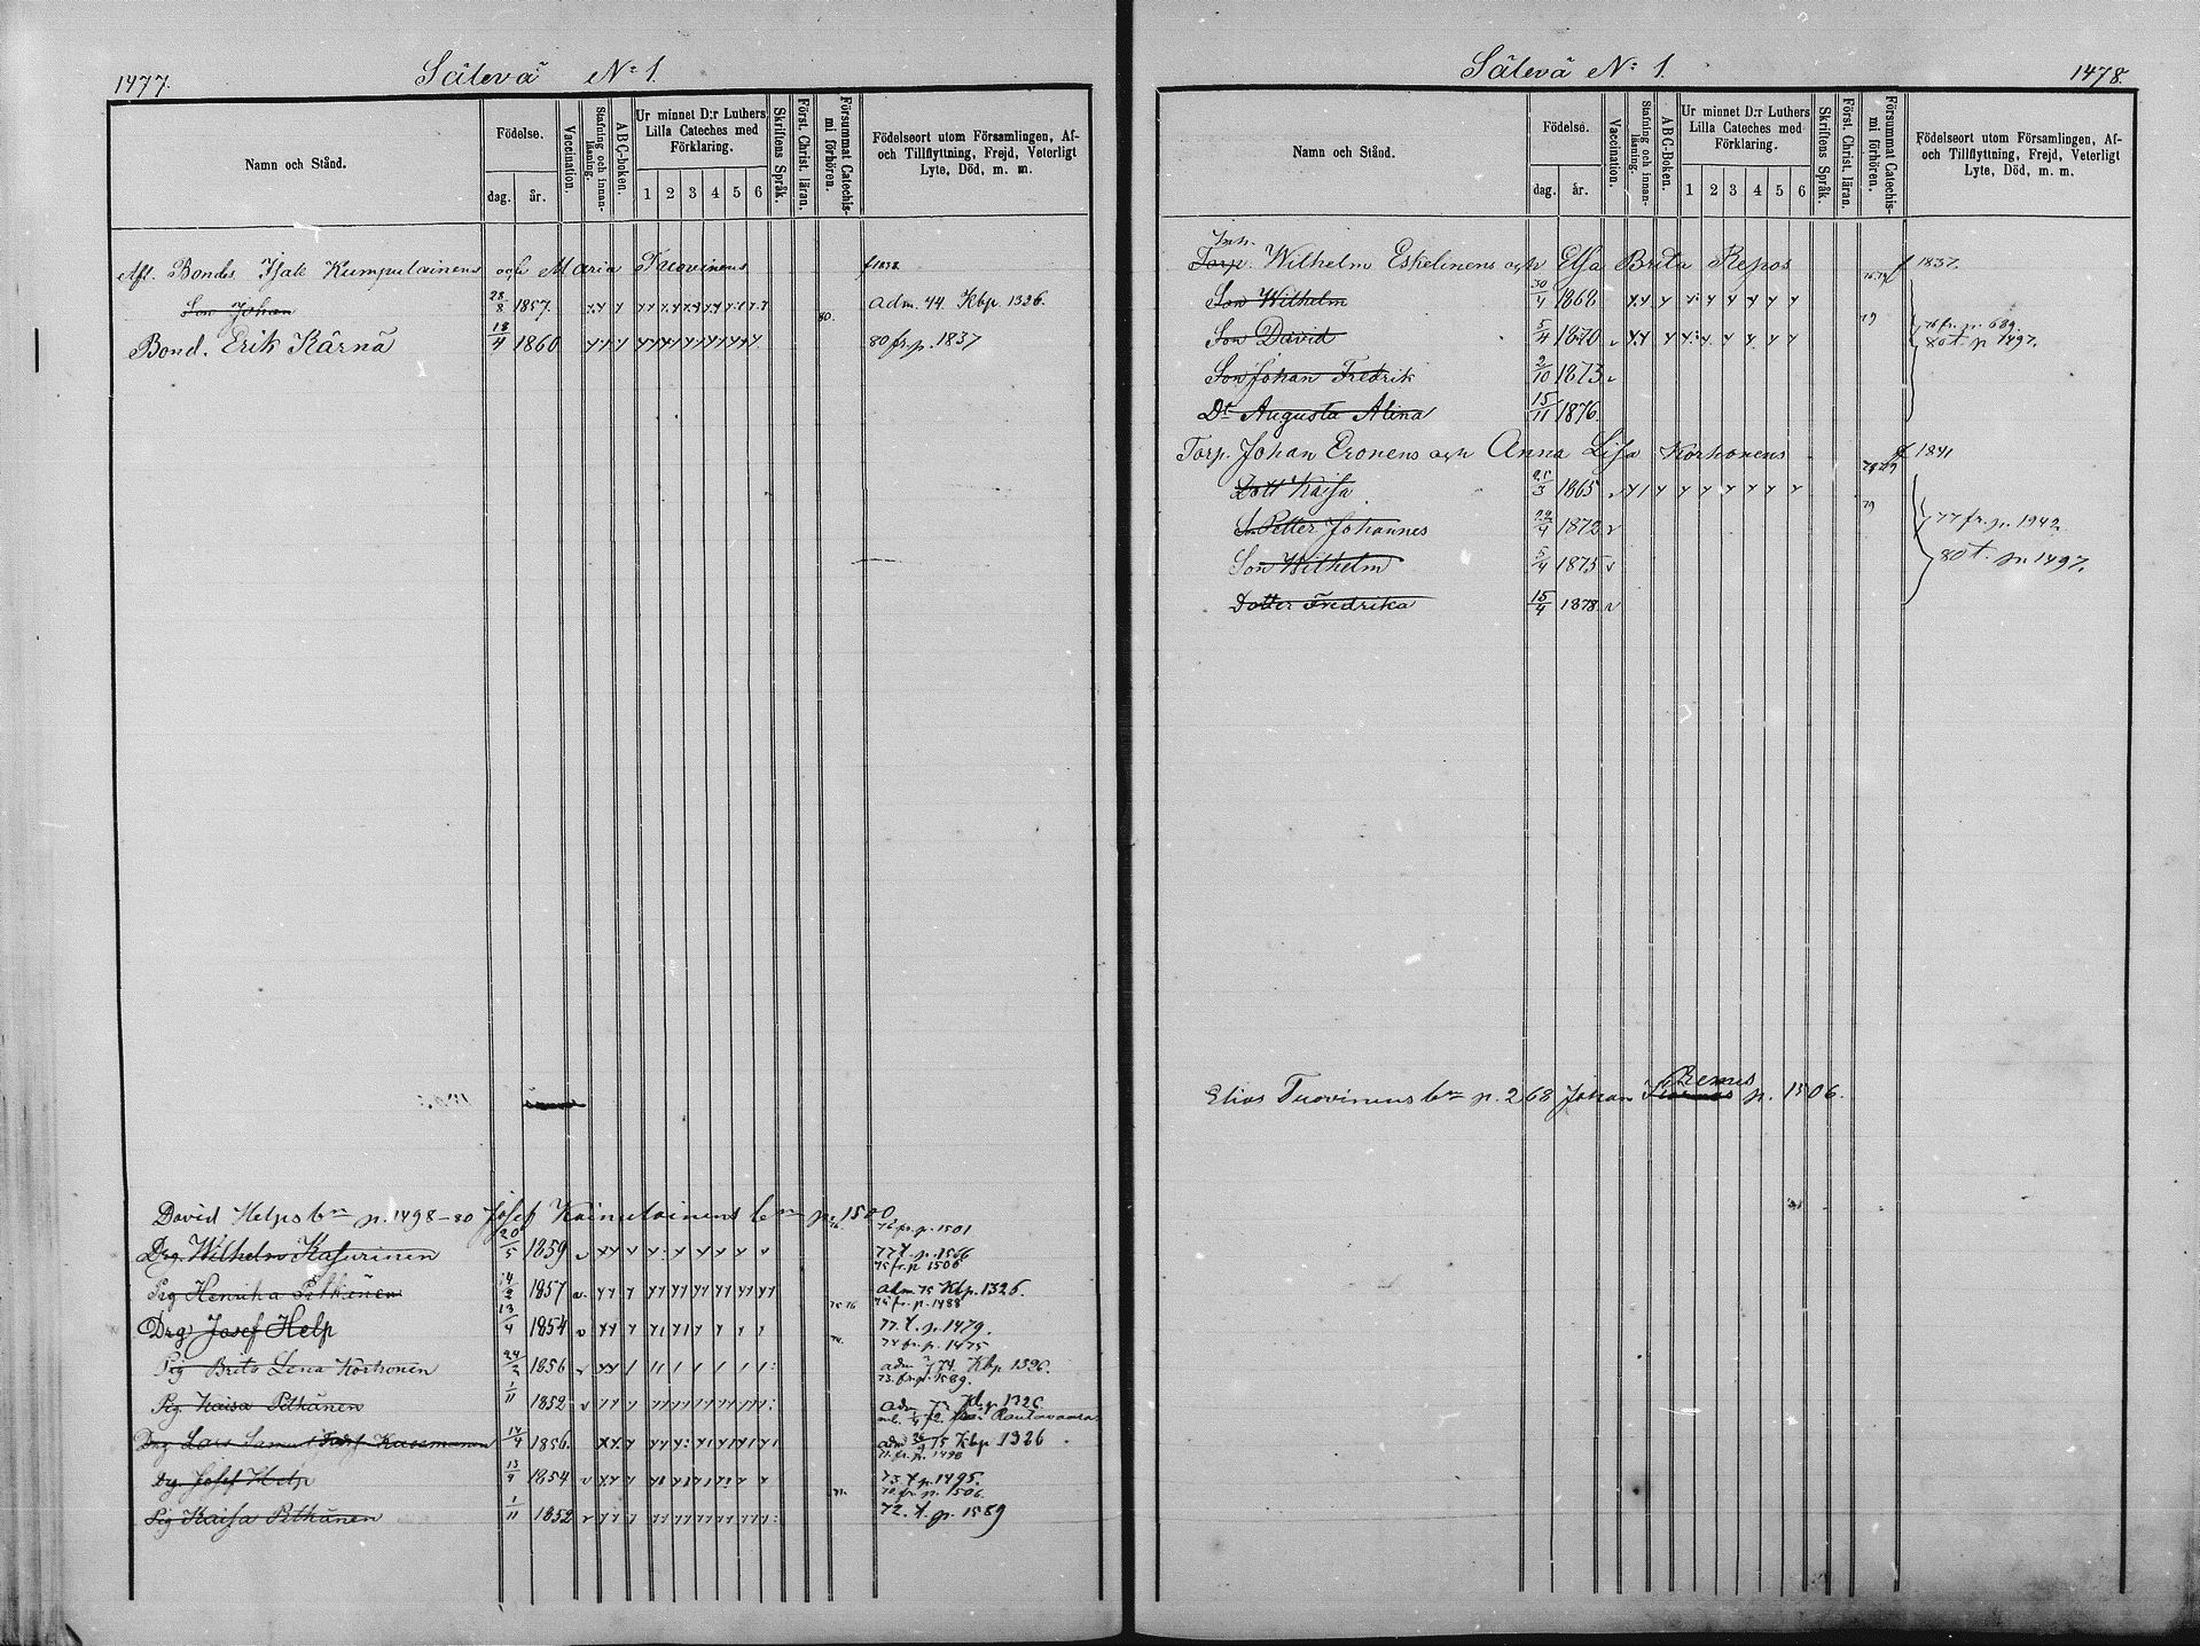 1477.
Sälevä No 1.
Namn och Stånd.
Födelse.
dag.
år.
Vaccination.
Stafning och innan-läsning.
ABC-boken.
Ur minnet D:r Luthers
Lilla Cateches med
Förklaring.
1 2 3 4 5 6
Skriftens Språk.
Först. Christ. läran.
Försummat Catechis-
mi förhören.
Födelseort utom Församlingen, Af-
och Tillflyttning, Frejd, Veterligt
Lyte, Död, m. m.
Afl. Bonden Isak Kumpulainens och Maria Tuovinens
Son Johan 28/8 1857. Adm. 44. Kbp. 1326.
80.
Bond. Erik Kärnä 18/4 1860 80 fr. p. 1837
David Helps bn p. 1498-80 Josef Kainulainens bn p. 1500
72 fr. p. 1501
Drg. Wilhelm Kasurinen 20/5 1859 77 t. p. 1566
75 fr. p. 1506
Pig Henrika Pitkänen 14/2 1857 adm. 75 Kbp. 1326.
75 76 74 fr. p. 1488
Drg Josef Help 13/4 1854 77. t. p. 1479.
74 fr. p. 1475
Pig Brita Lena Korhonen 24/2 1856 adm 74. Kbp 1326.
73. fr. p. 1589.
Pig Kaisa Pitkänen 1/11 1852 adm Kbp 1326
från Rautavaara
Drg Lars Samuel Kassmanen 14/4 1856. adm 75 Kbp 1326
71. fr. p. 1498
Drg. Josef Help 13/4 1854 73. t. p. 1495.
71. 70. fr. p. 1506.
Pig Kaisa Pitkänen 1/11 1852 72. t. p. 1589
Sälevä No 1.
1478.
Namn och Stånd.
Födelse.
dag.
år.
Vaccination.
Stafning och innan-läsning.
ABC-Boken.
Ur minnet D:r Luthers
Lilla Cateches med
Förklaring.
1 2 3 4 5 6
Skriftens Språk.
Först. Christ. läran.
Försummat Catechis-
mi förhören.
Födelseort utom Församlingen, Af-
och Tillflyttning, Frejd, Veterligt
Lyte, Död, m. m.
Inh.
Torp. Wilhelm Eskelinens och Elsa Brita Repos f 1837.
Son Wilhelm 30/4 1868
79 76 fr. p. 689.
Son David 5/4 1870 80 t. p 1497.
Son Johan Fredrik 2/10 1873
Dr Augusta Alina 15/11 1876
Torp. Johan Eronens och Anna Lisa Korhonens f 1841
Dott Kaisa 25/3 1865
79
S. Petter Johannes 24/4 1872 77 fr. p. 1942
Son Wilhelm 5/4 1875 80 t. p. 1497.
Dotter Fredrika 15/4 1878
Elias Tuovinens bn p. 268 Johan p. 1506.